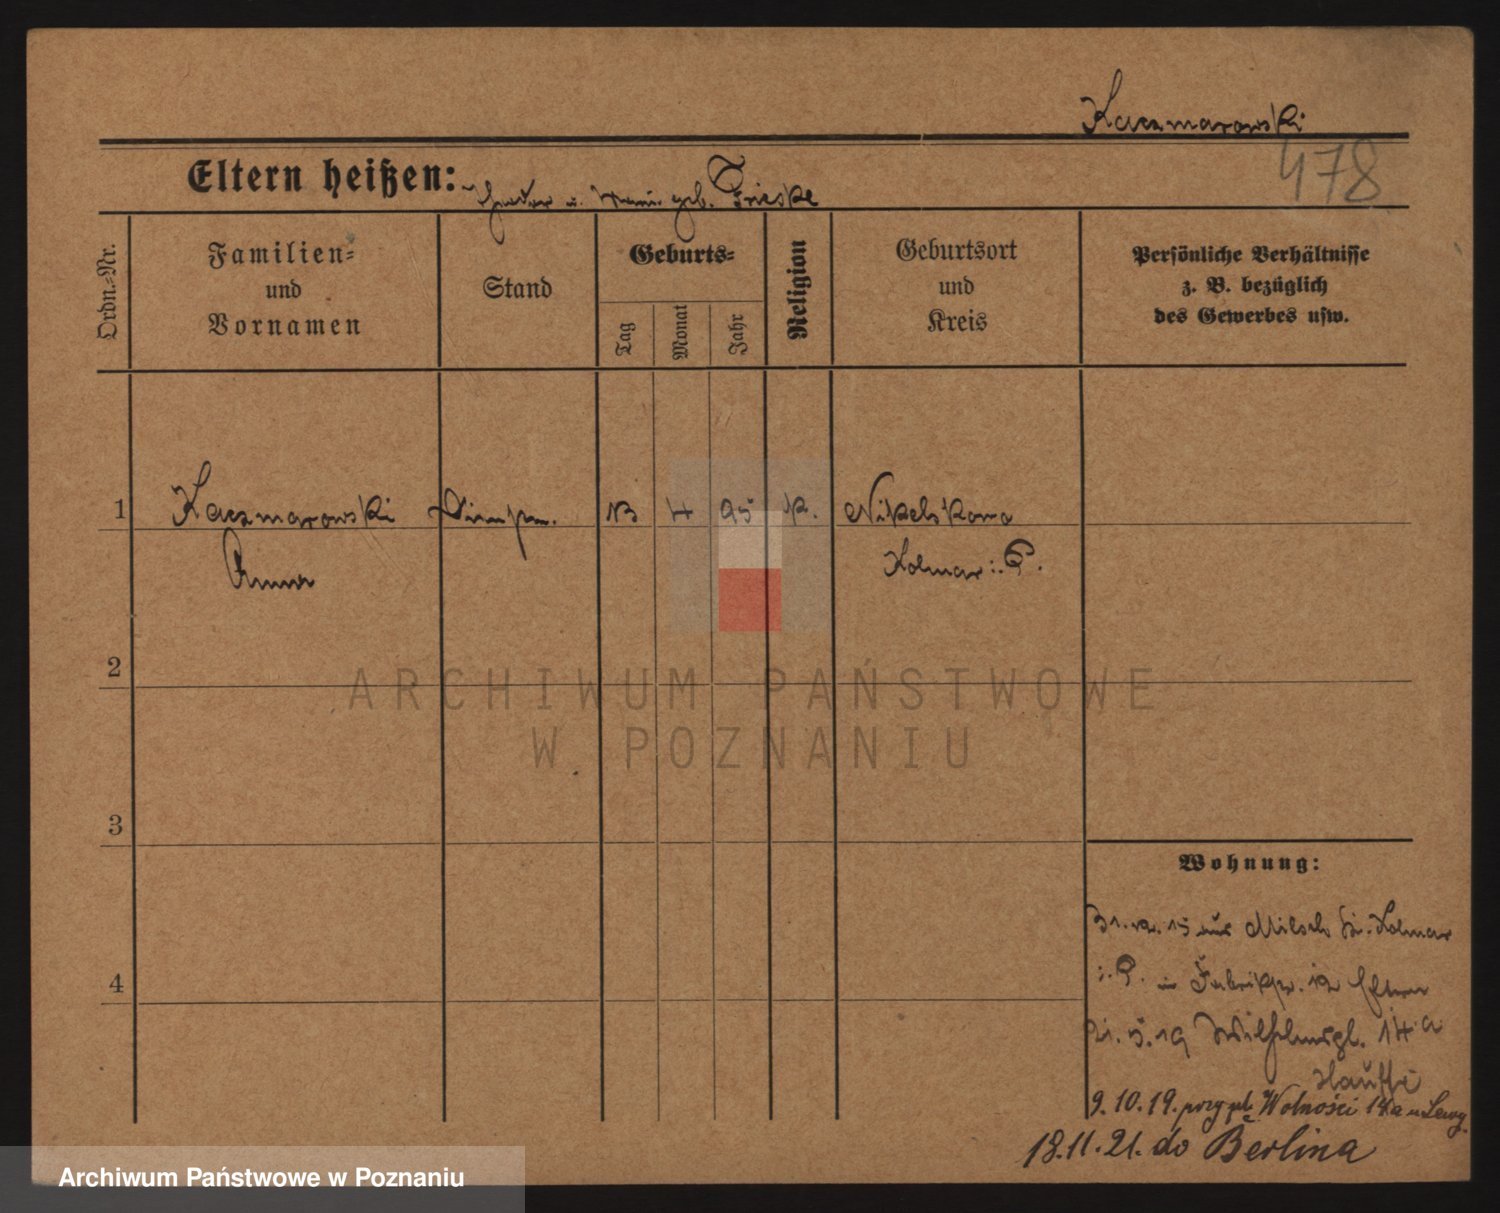 Kaczmarowski
478
Eltern heißen: u. geb. Frieske
Ordn.=Nr.
Familien=
und
Vornamen
Stand
Geburts=
Tag
Monat
Jahr
Religion
Geburtsort
und
Kreis
Persönliche Verhältnisse
z. B. bezüglich
des Gewerbes usw.
1
Kaczmarowski
Anna
13
4
95
k.
Nikelskowo
Kolmar i. P.
2
3
4
Wohnung:
31.12.15 aus Milsch Kr. Kolmar
i. P. in Fabrikstr. 12 Eltern
21.5.19 Wilhelmspl. 14a
Hauffe
9.10.19. przy pl. Wolności 14a u Lewy.
18.11.21. do Berlina
ARCHIWUM PAŃSTWOWE
W POZNANIU
Archiwum Państwowe w Poznaniu